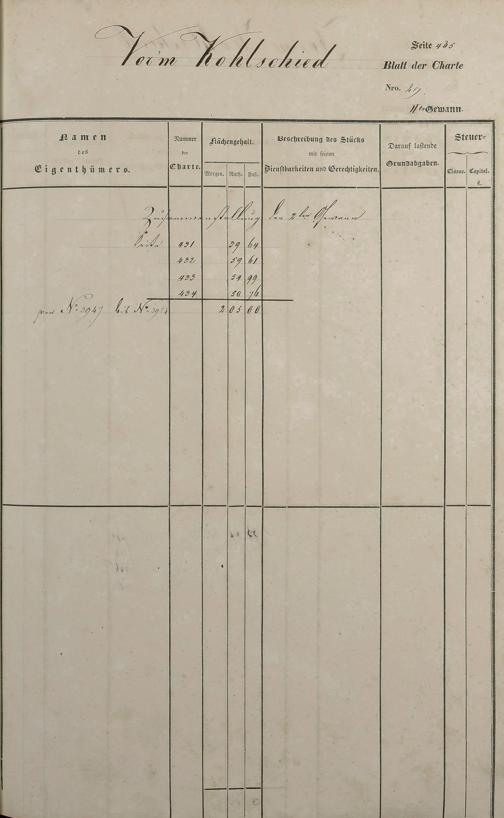 Vorm Kohlschied
Seite 435
Blatt der Charte
Nro. 47
IIte Gewann.
Namen des Eigenthümers.
Nummer der Charte.
Flächengehalt.
Morgen. Ruth. Fuß.
Beschreibung des Stücks mit seinen Dienstbarkeiten und Gerechtigkeiten.
Darauf lastende Grundabgaben.
Steuer-
Classe. Capital.
fl.
Zusammenstellung der 2ten Gewann
Seite 431 39 64
432 59 61
433 54 99
434 50 76
von No. 3947 bis No.